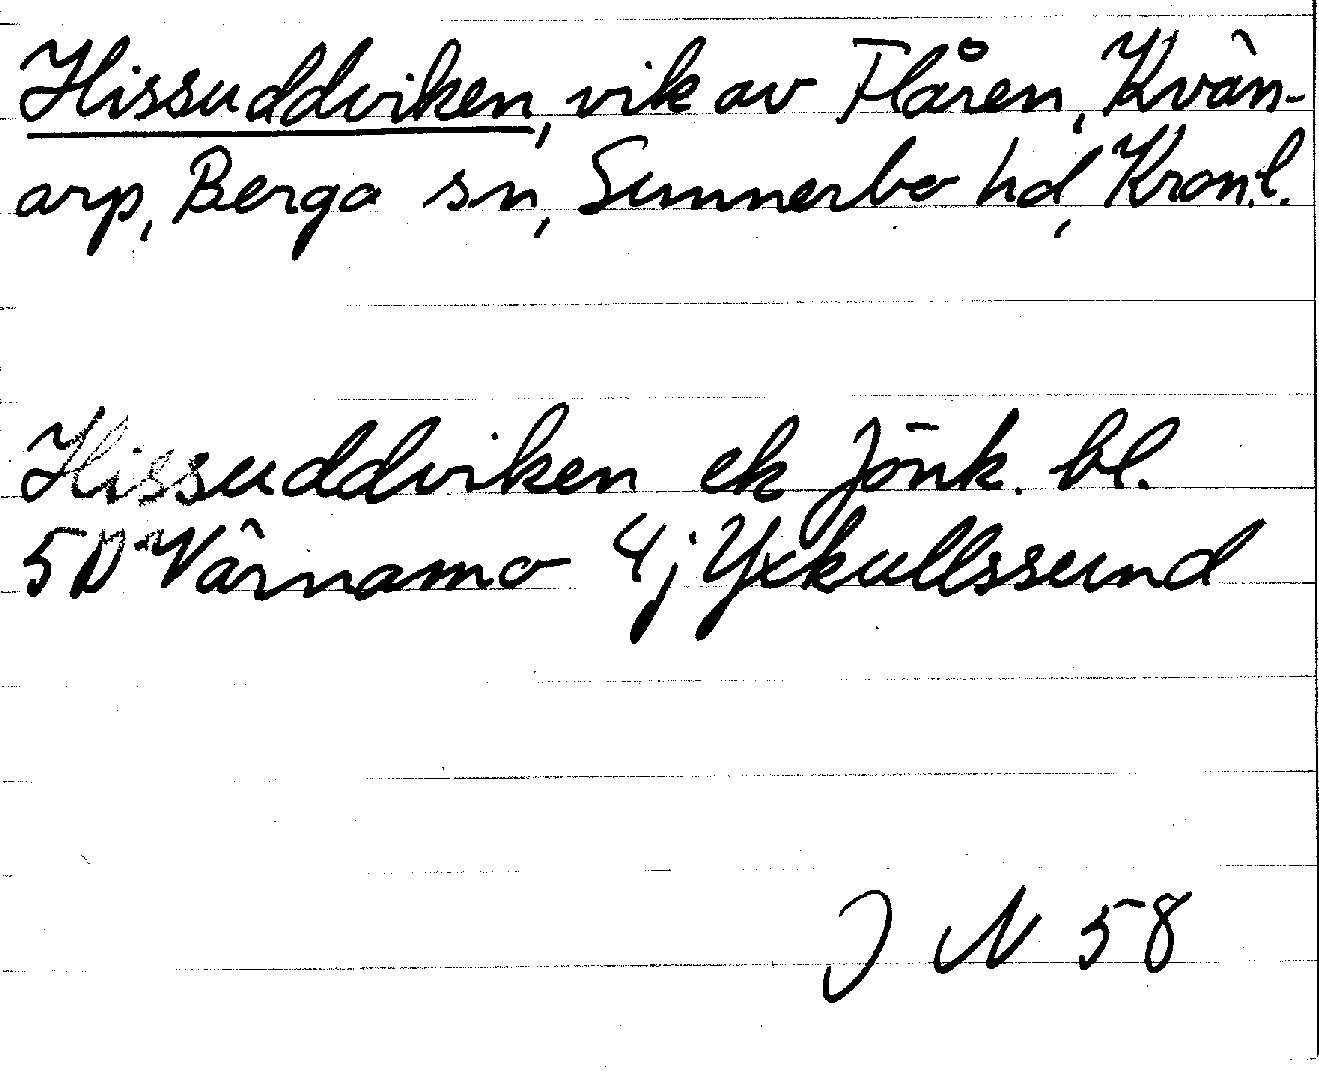 Hissuddviken, vik av Flåren, Kvän-
arp, Berga sn, Sunnerbo hd, Kron.l.
Hissuddviken ek Jönk. bl.
5D Värnamo 4j Yxkullssund
J N 58